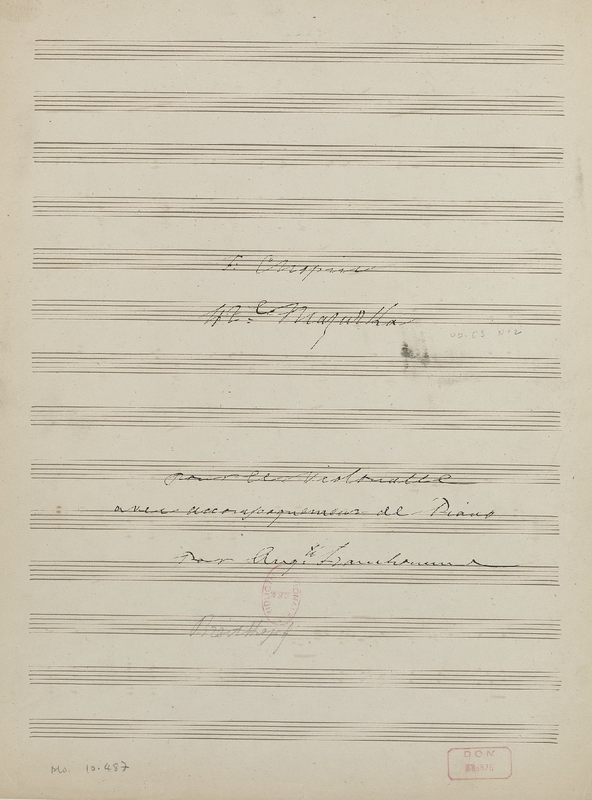 F. Chopin
Mazurka
op. 63 N° 2
pour le Violoncelle
avec accompagnement de Piano
par Aug.te Franchomme
Breitkopf
Ms. 10.487
DON